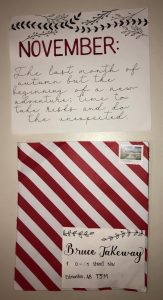 NOVEMBER:
The last month of
autumn but the
beginning of a new
adventure; time to
take risks and do
the unexpected.
Bruce Takeway
Edmonton, AB T5M